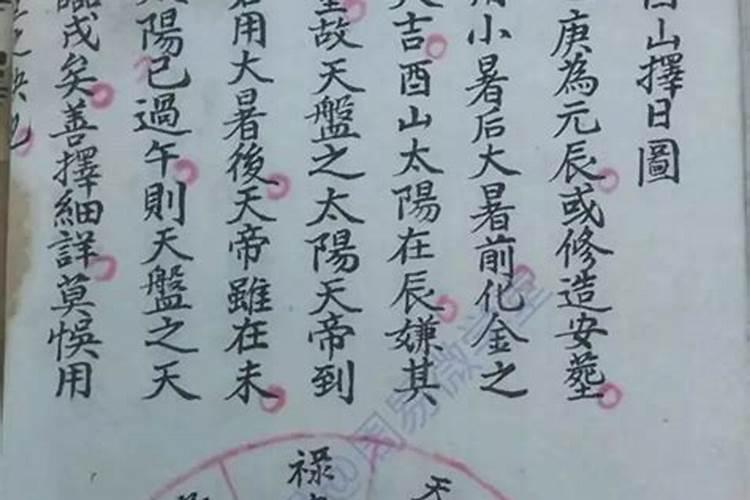 酉山擇日圖
庚為元辰或修造安塟
小暑后大暑前化金之
吉酉山太陽在辰嫌其
故天盤之太陽天帝到
用大暑後天帝雖在未
陽已過午則天盤之天
戌矣善擇細詳莫悞用
祿
天